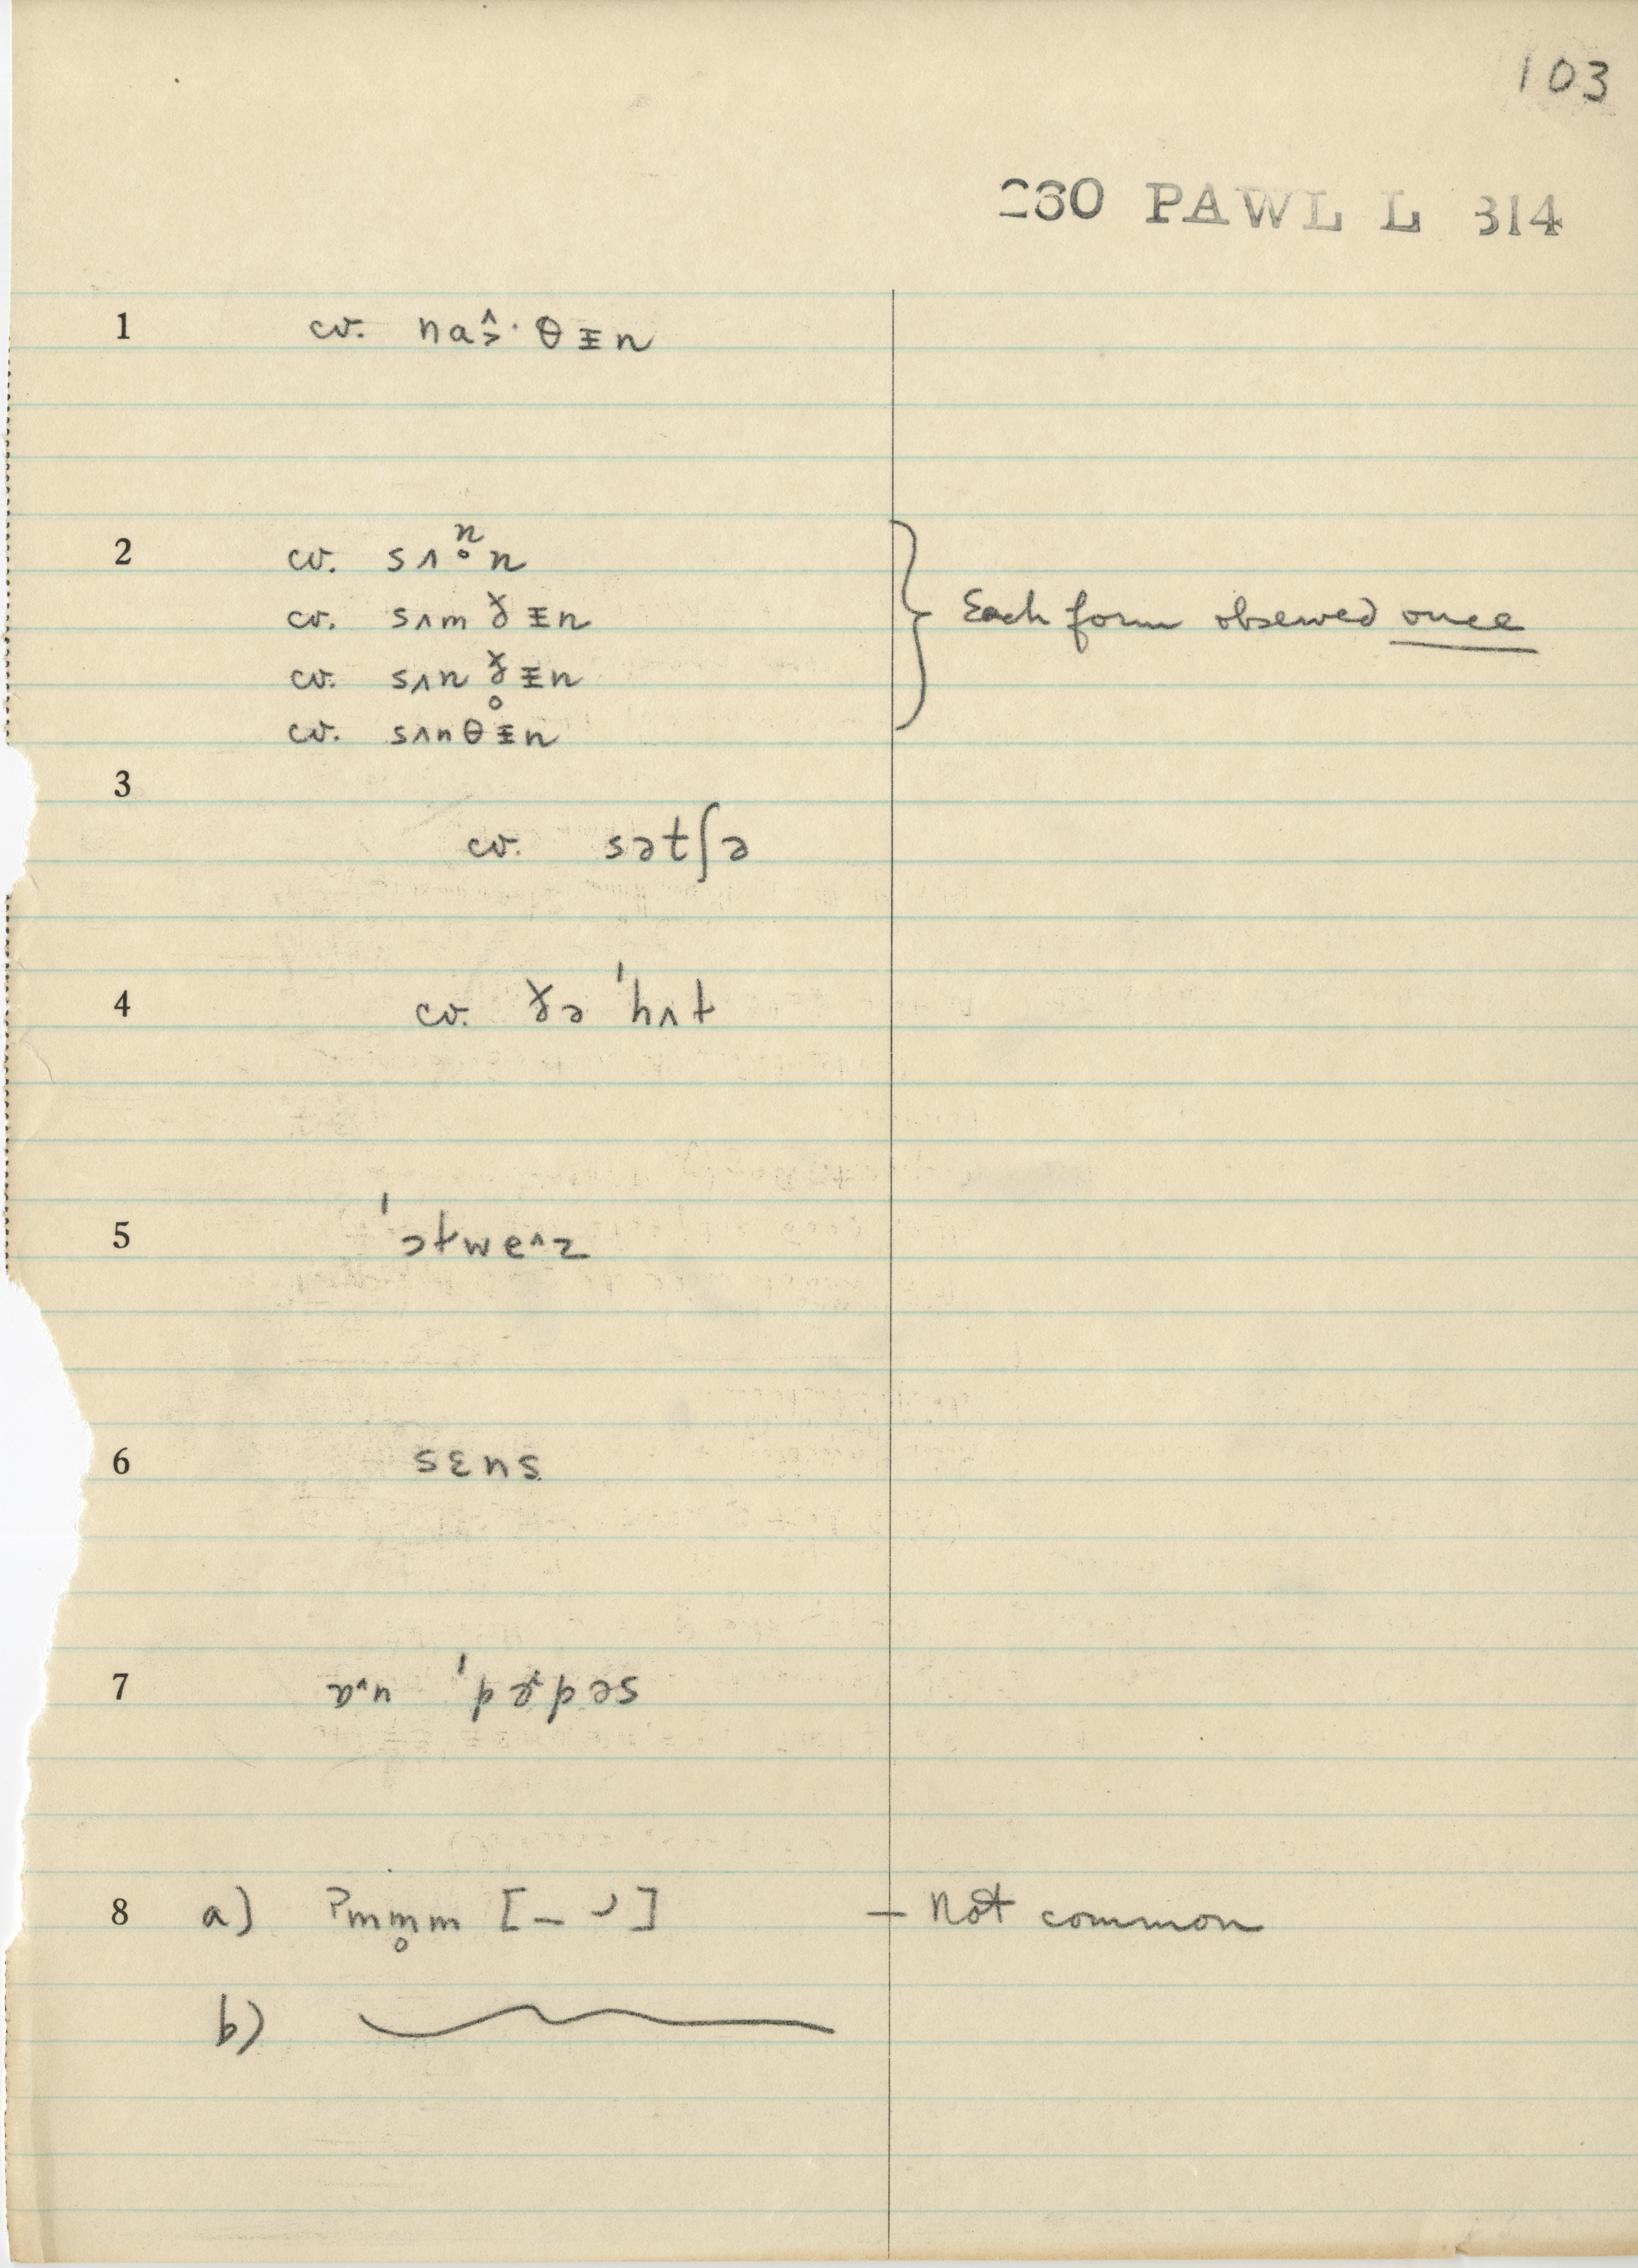 103
260 PAWL L 314
1 cv. na^>· θᵻn
2 cv. sʌn̥n
cv. sʌm ɣᵻn
cv. sʌn ɣ̥ᵻn
cv. sʌnθᵻn
Each form observed once
3
cv. sətʃə
4 cv. ɣə ˈhʌt
5 ˈɔtwe^z
6 sɛns
7
8 a) ʔmm̥m [– ╯] — Not common
b)